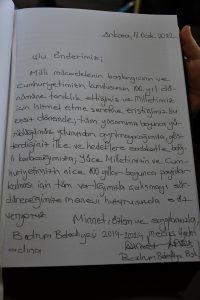 Ankara, 11 Ocak 2022
Ulu Önderimiz;
Milli mücadelenin başlangıcının ve
Cumhuriyetimizin kuruluşunun 100. yıl dö-
nümüne tanıklık ettiğimiz ve Milletimiz
için hizmet etme şerefine eriştiğimiz bu
eşsiz dönemde, tüm yaşamımız boyunca
yolundan ayrılmayacağımıza, gös-
terdiğiniz ilke ve hedeflere sadakatle bağlı
kalacağımıza, Yüce Milletimizin ve Cum-
huriyetimizin nice 100 yıllar boyunca payidar
kalması için tüm varlığımızla çalışmayı sür-
düreceğimize manevi huzurunuzda söz
veriyoruz.
Minnet, özlem ve saygılarımızla,
Bodrum Belediyesi 2019-2024 Meclis Üyeleri
adına
Ahmet
Bodrum Belediye Bşk.